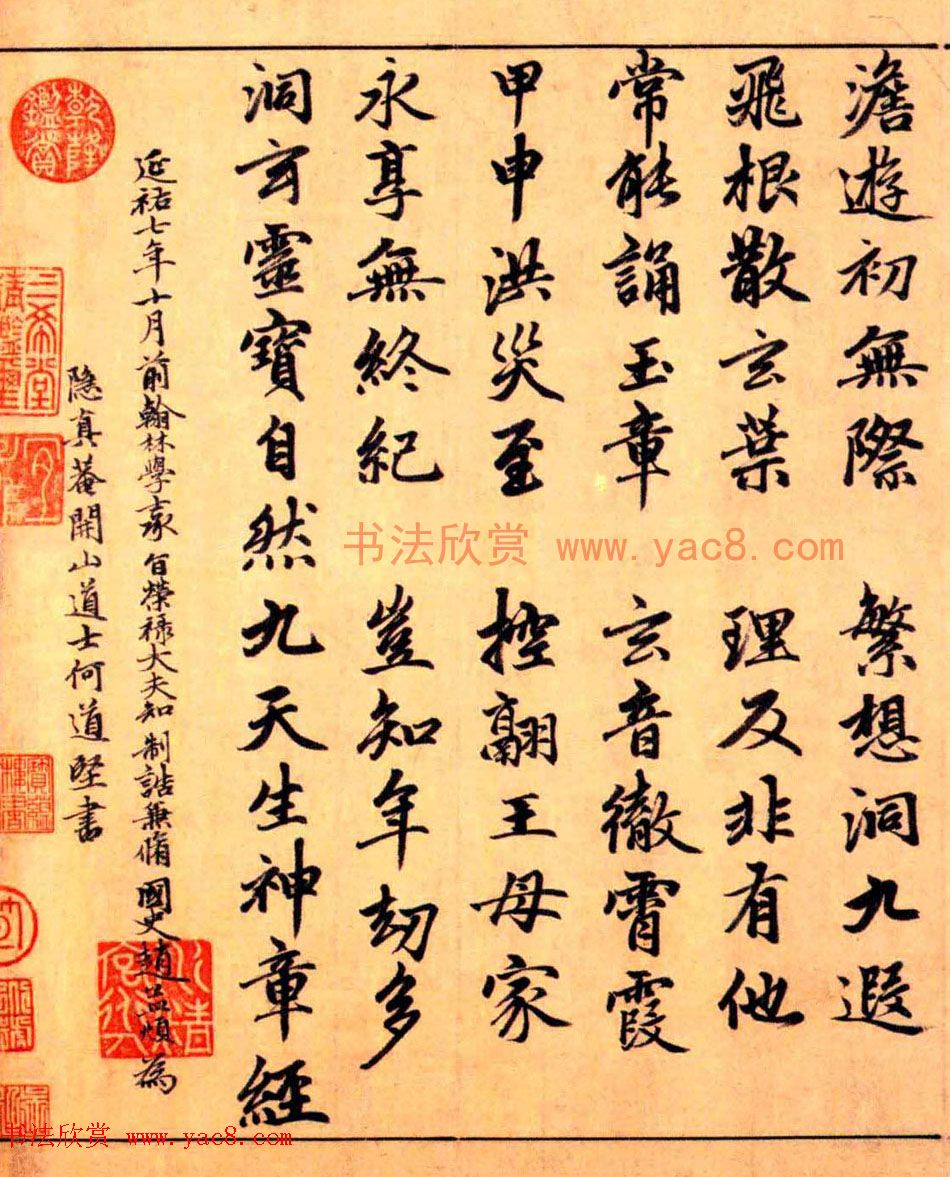 澹遊初無際 繁想洞九遐
飛根散玄葉 理反非有他
常能誦玉章 玄音徹霄霞
甲申洪災至 控翮王母家
永享無終紀 豈知年劫多
洞玄靈寶自然九天生神章經
延祐七年十月前翰林學士承旨榮祿大夫知制誥兼脩國史趙孟頫為
隱真菴開山道士何道堅書
乾隆鑑賞
三希堂
书法欣赏 www.yac8.com
书法欣赏 www.yac8.com